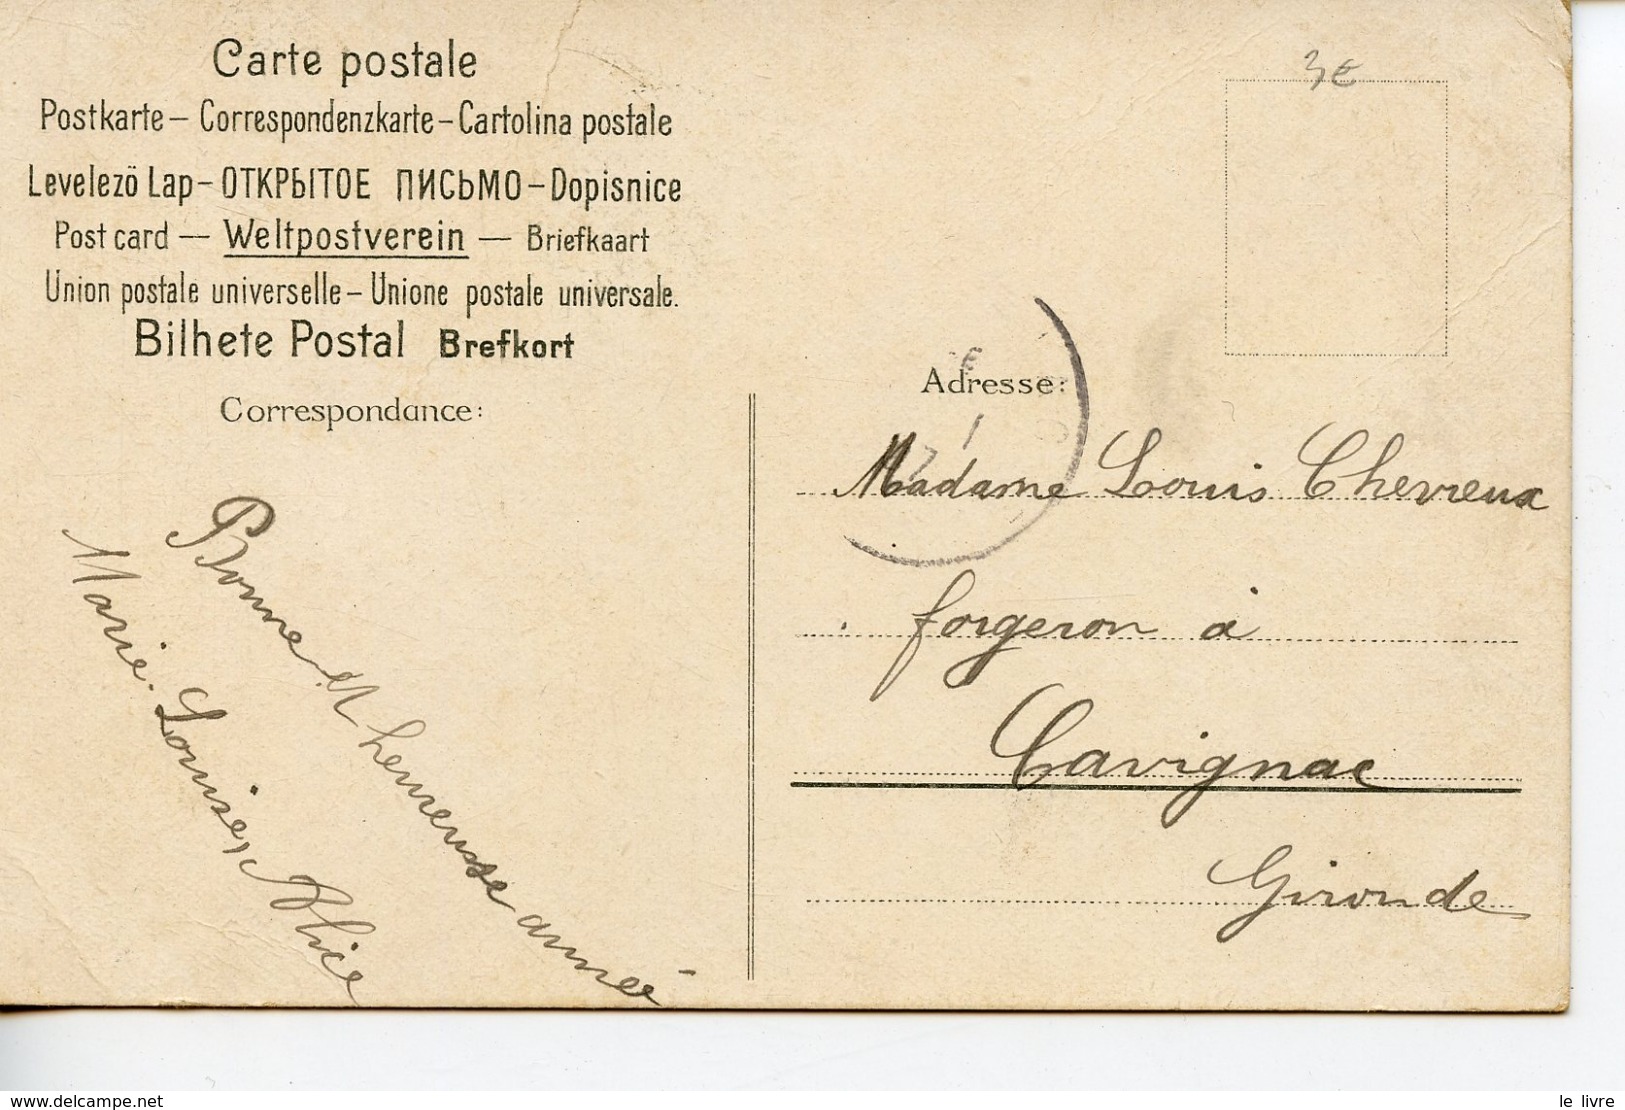 Carte postale
Postkarte – Correspondenzkarte – Cartolina postale
Levelezö Lap – ОТКРЫТОЕ ПИСЬМО – Dopisnice
Post card — Weltpostverein — Briefkaart
Union postale universelle – Unione postale universale.
Bilhete Postal Brefkort
Correspondance:
Bonne et heureuse année
Marie. Louise, Alice
3€
Adresse:
Madame Louis Chevreux
forgeron à
Cavignac
Gironde
www.delcampe.net
le livre